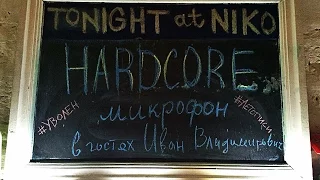 TONIGHT at NIKO
HARDCORE
микрофон
#УВОЛЕН
#ЛЕГОТИЕИ
в гостях Иван Владимирович